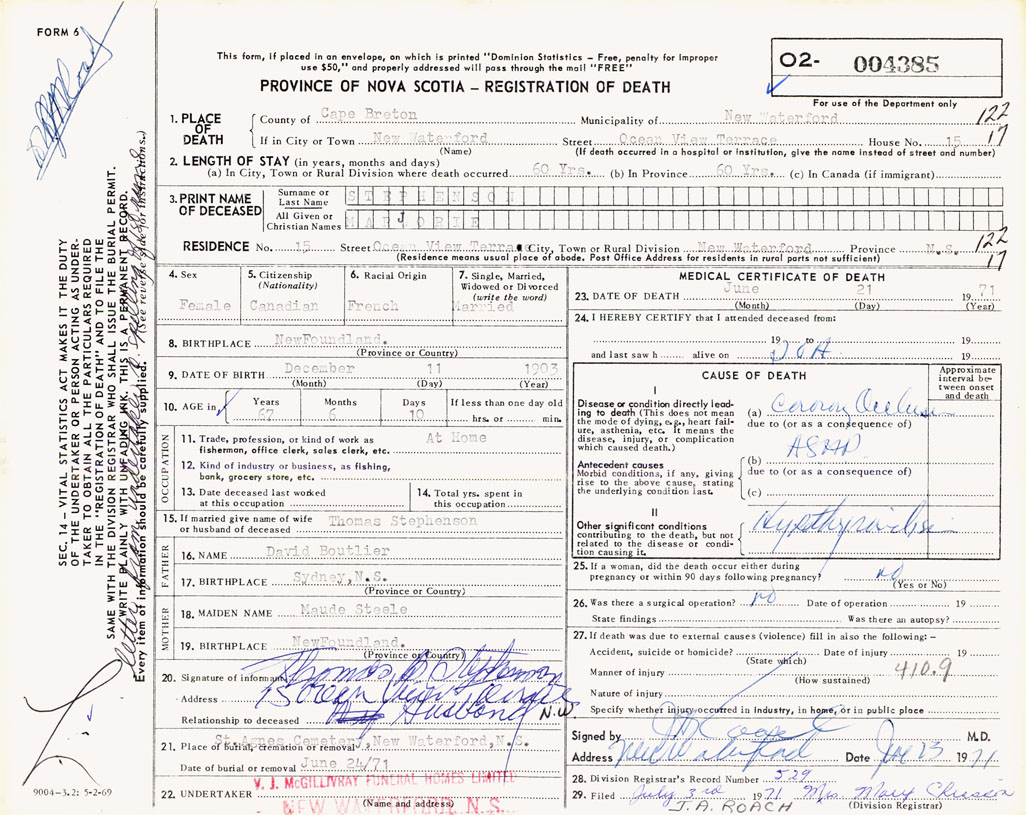 FORM 6
This form, if placed in an envelope, on which is printed "Dominion Statistics – Free, penalty for improper
use $50," and properly addressed will pass through the mail "FREE"
PROVINCE OF NOVA SCOTIA – REGISTRATION OF DEATH
02- 004385
For use of the Department only
1. PLACE OF DEATH County of Cape Breton Municipality of New Waterford 122
If in City or Town New Waterford Street Ocean View Terrace House No. 15 17
(Name) (If death occurred in a hospital or institution, give the name instead of street and number)
2. LENGTH OF STAY (in years, months and days)
(a) In City, Town or Rural Division where death occurred 60 Yrs. (b) In Province 60 Yrs. (c) In Canada (if immigrant)
3. PRINT NAME OF DECEASED Surname or Last Name STEPHENSON
All Given or Christian Names MARJORIE
RESIDENCE No. 15 Street Ocean View Terrace City, Town or Rural Division New Waterford Province N.S. 122
(Residence means usual place of abode. Post Office Address for residents in rural parts not sufficient) 17
4. Sex Female
5. Citizenship (Nationality) Canadian
6. Racial Origin French
7. Single, Married, Widowed or Divorced (write the word) Married
8. BIRTHPLACE NewFoundland.
(Province or Country)
9. DATE OF BIRTH December 11 1903
(Month) (Day) (Year)
10. AGE in Years 67 Months 6 Days 10 If less than one day old
hrs. or min.
OCCUPATION
11. Trade, profession, or kind of work as At Home
fisherman, office clerk, sales clerk, etc.
12. Kind of industry or business, as fishing,
bank, grocery store, etc.
13. Date deceased last worked
at this occupation
14. Total yrs. spent in
this occupation
15. If married give name of wife
or husband of deceased Thomas Stephenson
FATHER
16. NAME David Boutlier
17. BIRTHPLACE Sydney, N.S.
(Province or Country)
MOTHER
18. MAIDEN NAME Maude Steele
19. BIRTHPLACE NewFoundland.
(Province or Country)
20. Signature of informant Thomas Stephenson
Address 15 Ocean View Terrace
Relationship to deceased Husband N.W.
21. Place of burial, cremation or removal St. Agnes Cemetery, New Waterford, N.S.
Date of burial or removal June 24/71
22. UNDERTAKER V. J. McGILLIVRAY FUNERAL HOMES LIMITED
(Name and address)
NEW WATERFORD, N.S.
MEDICAL CERTIFICATE OF DEATH
23. DATE OF DEATH June 21 1971
(Month) (Day) (Year)
24. I HEREBY CERTIFY that I attended deceased from:
19 to 19
and last saw h alive on DOA 19
CAUSE OF DEATH
Approximate interval between onset and death
I
Disease or condition directly leading to death (This does not mean the mode of dying, e.g., heart failure, asthenia, etc. It means the disease, injury, or complication which caused death.)
(a) Coronary Occlusion
due to (or as a consequence of)
ASHD
Antecedent causes
Morbid conditions, if any, giving rise to the above cause, stating the underlying condition last.
(b)
due to (or as a consequence of)
(c)
II
Other significant conditions
contributing to the death, but not related to the disease or condition causing it.
Hypothyroidism
25. If a woman, did the death occur either during
pregnancy or within 90 days following pregnancy? no
(Yes or No)
26. Was there a surgical operation? no Date of operation 19
State findings Was there an autopsy?
27. If death was due to external causes (violence) fill in also the following: –
Accident, suicide or homicide? Date of injury 19
(State which)
Manner of injury 410.9
(How sustained)
Nature of injury
Specify whether injury occurred in industry, in home, or in public place
Signed by M.D.
Address New Waterford Date June 23 1971
28. Division Registrar's Record Number 529
29. Filed July 3rd 1971 Mrs. Mary Chiasson
J.A. ROACH (Division Registrar)
SEC. 14 – VITAL STATISTICS ACT MAKES IT THE DUTY
OF THE UNDERTAKER OR PERSON ACTING AS UNDER-
TAKER TO OBTAIN ALL THE PARTICULARS REQUIRED
IN THE "REGISTRATION OF DEATH" AND TO FILE THE
SAME WITH THE DIVISION REGISTRAR WHO SHALL ISSUE THE BURIAL PERMIT.
WRITE PLAINLY WITH UNFADING INK. THIS IS A PERMANENT RECORD.
Every item of information should be carefully supplied. (See reverse side for instructions.)
letter from undertaker
9004-3.2: 5-2-69